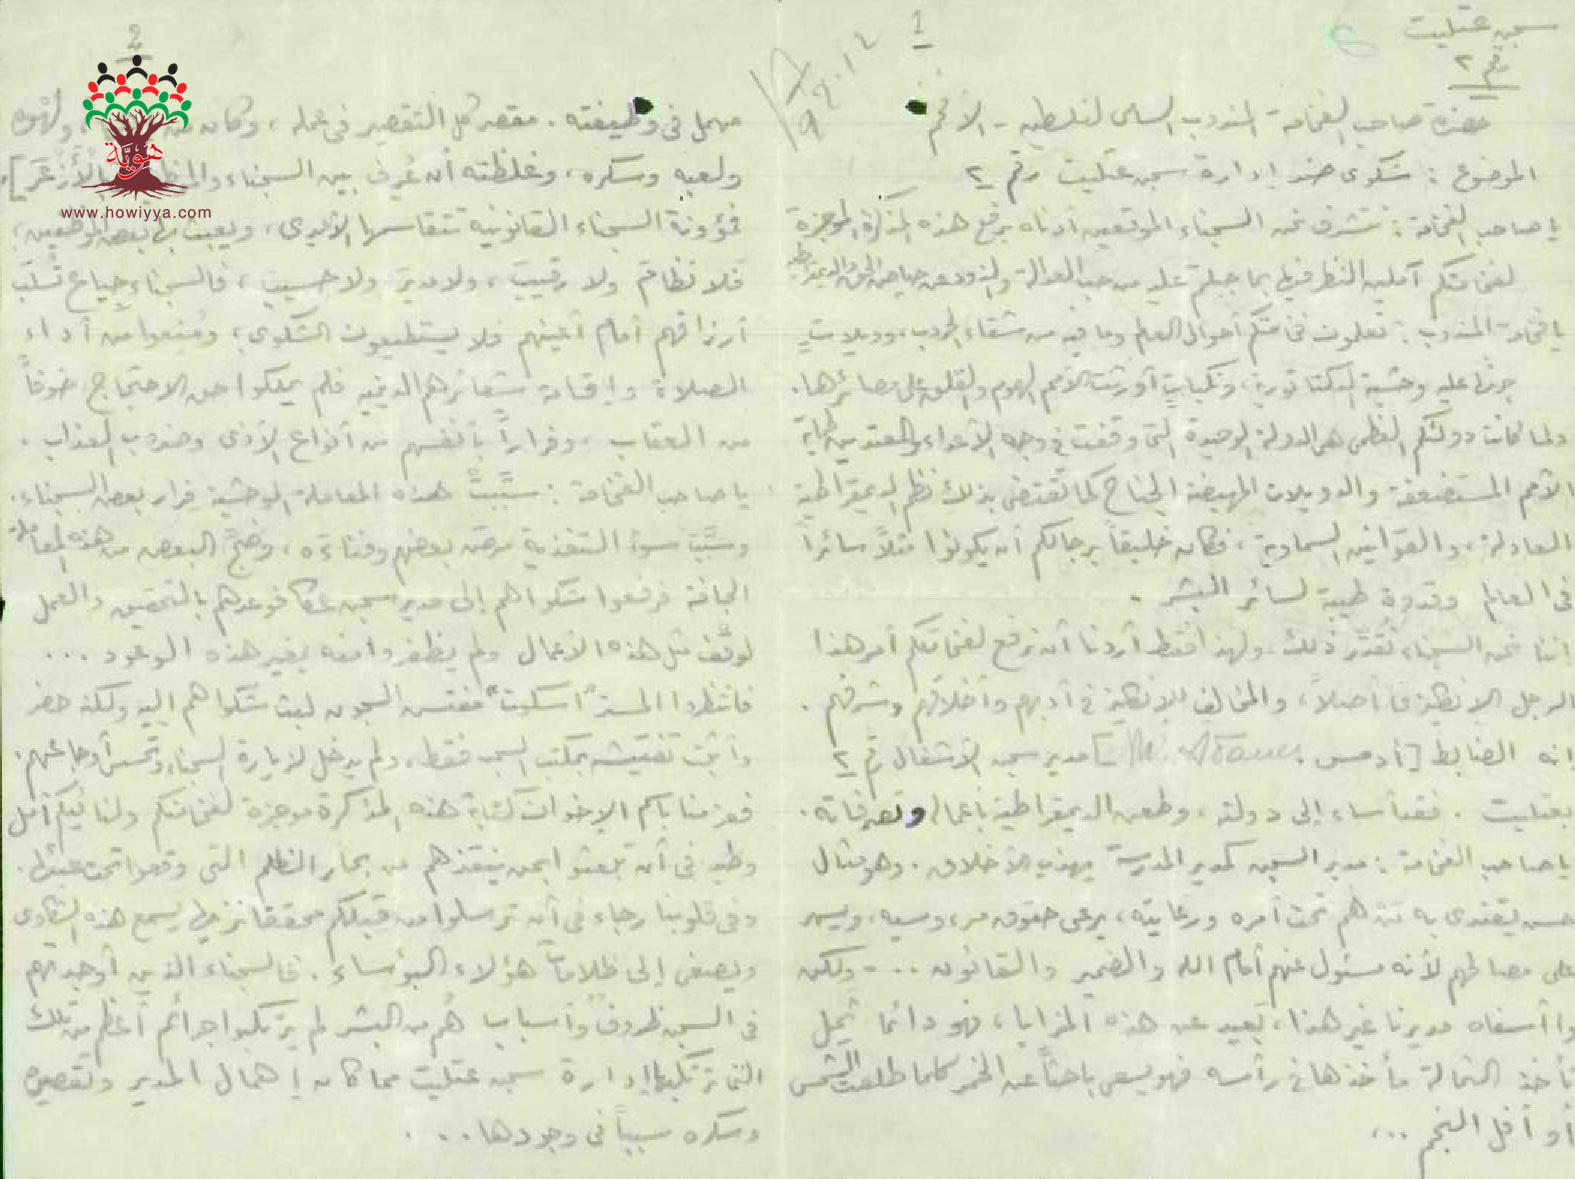 سجن عتليت
رقم ٢
1
حضرة صاحب الفخامة المندوب السامي لفلسطين - الأفخم
الموضوع : شكوى ضد إدارة سجن عتليت رقم ٢
يا صاحب الفخامة : نتشرف نحن السجناء الموقعين أدناه برفع هذه المذكرة الموجزة
لفخامتكم آملين النظر فيها بما جبلتم عليه من حب العدالة والذود عن حياض الحق والديمقراطية
يا فخامة المندوب : تعلمون فخامتكم أحوال العالم وما فيه من شقاء الحروب، وويلات
جرتها عليه وحشية الدكتاتورية، ونكبات أورثت الأمم الهموم والقلق على مصائرها.
ولما كانت دولتكم العظمى هي الدولة الوحيدة التي وقفت في وجه الأعداء والمعتدين لحماية
الأمم المستضعفة والدويلات المهيضة الجناح كما تقتضي بذلك نظم الديمقراطية
العادلة، والقوانين السماوية، فكان خليقاً برجالكم أن يكونوا مثلاً سائراً
في العالم وقدوة طيبة لسائر البشر -
إننا نحن السجناء نُقدّر ذلك، ولهذا فقط أردنا أن نرفع لفخامتكم أمر هذا
الرجل الإنكليزي أصلاً، والمخالف للإنكليز في أدبهم وأخلاقهم وشرفهم .
إنه الضابط [أدمس . ] مدير سجن الأشغال رقم ٢
بعتليت . فقد أساء إلى دولته، وطعن الديمقراطية بأعماله وتصرفاته .
يا صاحب الفخامة : مدير السجن كمدير المدرسة يهذب الأخلاق . وهو مثال
حسن يقتدي به من هم تحت أمره ورعايته، يرعى حقوق مرءوسيه، ويسهر
على مصالحهم لأنه مسئول عنهم أمام الله والضمير والقانون .. - ولكن
وا أسفاه مديرنا غير هذا، بعيد عن هذه المزايا، فهو دائما ثمل
تأخذ الثمالة مأخذها في رأسه فهو يسعى باحثاً عن الخمر كلما طلعت الشمس
أو أفل النجم ...
2
مهمل في وظيفته . مقصر كل التقصير في عمله ، وكان من
ولعبه وسكره ، وغلظته أن عُرف بين السجناء
فمؤونة السجناء القانونية تتقاسمها الأيدي، ويعبث بها بعض الموظفين،
فلا نظام ولا رقيب، ولا مدير ولا حسيب، فالسجناء جياع تُسلب
أرزاقهم أمام أعينهم فلا يستطيعون الشكوى، ومُنعوا من أداء
الصلاة وإقامة شعائرهم الدينية فلم يملكوا حق الاحتجاج خوفاً
من العقاب، وفراراً بأنفسهم من أنواع الأذى وضروب العذاب .
يا صاحب الفخامة : سبّبتْ هذه المعاملة الوحشية فرار بعض السجناء.
وسبّبَ سوء التغذية مرض بعضهم وفناءه، وضجّ البعض من هذه المعاملة
الجافة فرفعوا شكواهم إلى مدير سجن عكا فوعدهم بالتحقيق والعمل
لوقف مثل هذه الأعمال ولم يظفروا منه بغير هذه الوعود ...
فانتظروا المستر "اسكوت" مفتش السجون لبث شكواهم إليه ولكنه حضر
وأثبت تفتيشه بمكتب السجن فقط، ولم يدخل لزيارة السجناء وتحسس أوجاعهم،
فعزمنا باسم الإخوان كتابة هذه المذكرة موجزة لفخامتكم ولنا فيكم أمل
وطيد في أن تبعثوا بمن ينقذهم من بحار الظلم التي وقعوا تحت عبئها.
وفي قلوبنا رجاء في أن ترسلوا من قبلكم محققا نزيها يسمع هذه الشكاوى
ويصغي إلى ظلامات هؤلاء البؤساء . فالسجناء الذين أوجدتهم
في السجن ظروفٌ وأسباب هُم من البشر لم يرتكبوا جرائم أعظم من تلك
التي ترتكبها إدارة سجن عتليت مما كان إهمال المدير وتقصيره
وسكره سبباً في وجودها ...
هوية
www.howiyya.com